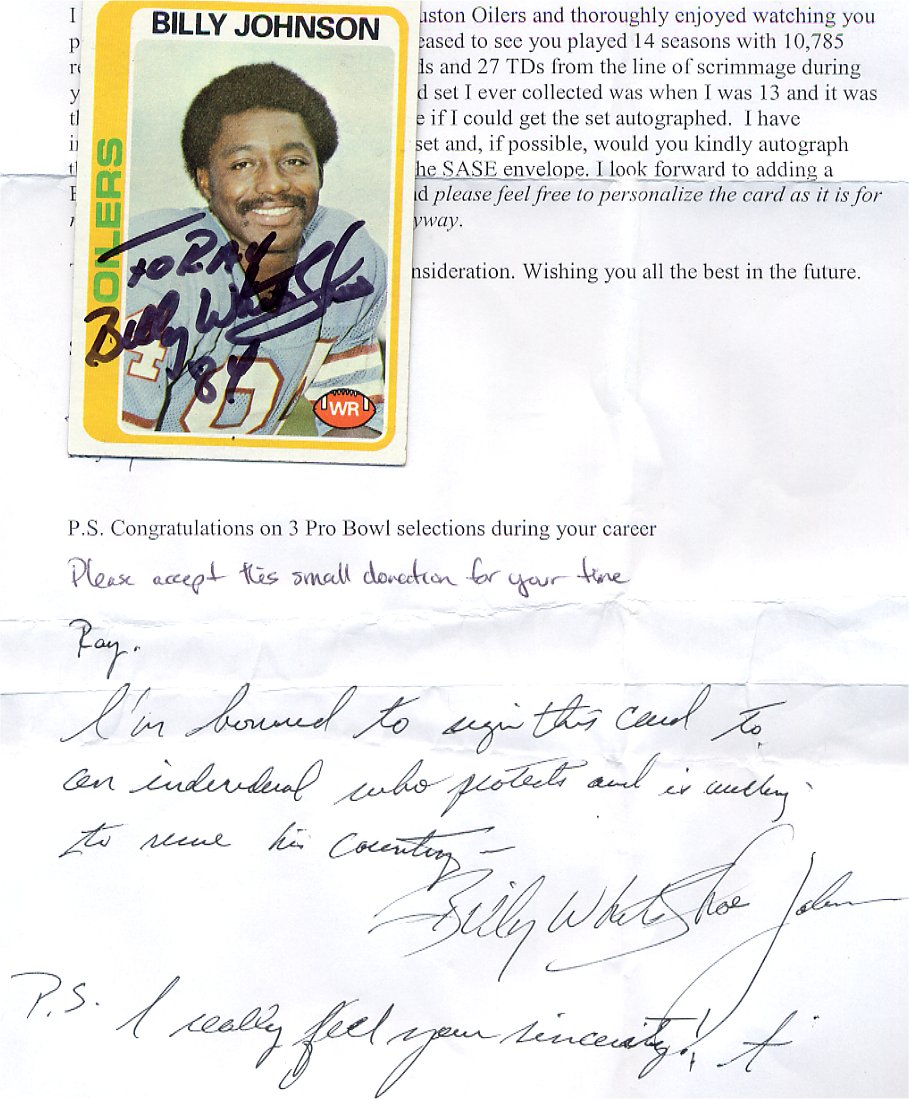 BILLY JOHNSON
OILERS
To RAy
Billy White Shoe
84
WR
I
uston Oilers and thoroughly enjoyed watching you
p
eased to see you played 14 seasons with 10,785
re
ds and 27 TDs from the line of scrimmage during
y
d set I ever collected was when I was 13 and it was
th
e if I could get the set autographed. I have
in
set and, if possible, would you kindly autograph
th
he SASE envelope. I look forward to adding a
d please feel free to personalize the card as it is for
yway.
nsideration. Wishing you all the best in the future.
P.S. Congratulations on 3 Pro Bowl selections during your career
Please accept this small donation for your time
Ray.
I'm honored to sign this card to
an individual who protects and is willing
to serve his country –
Billy White Shoe John
P.S. I really feel your sincerity!